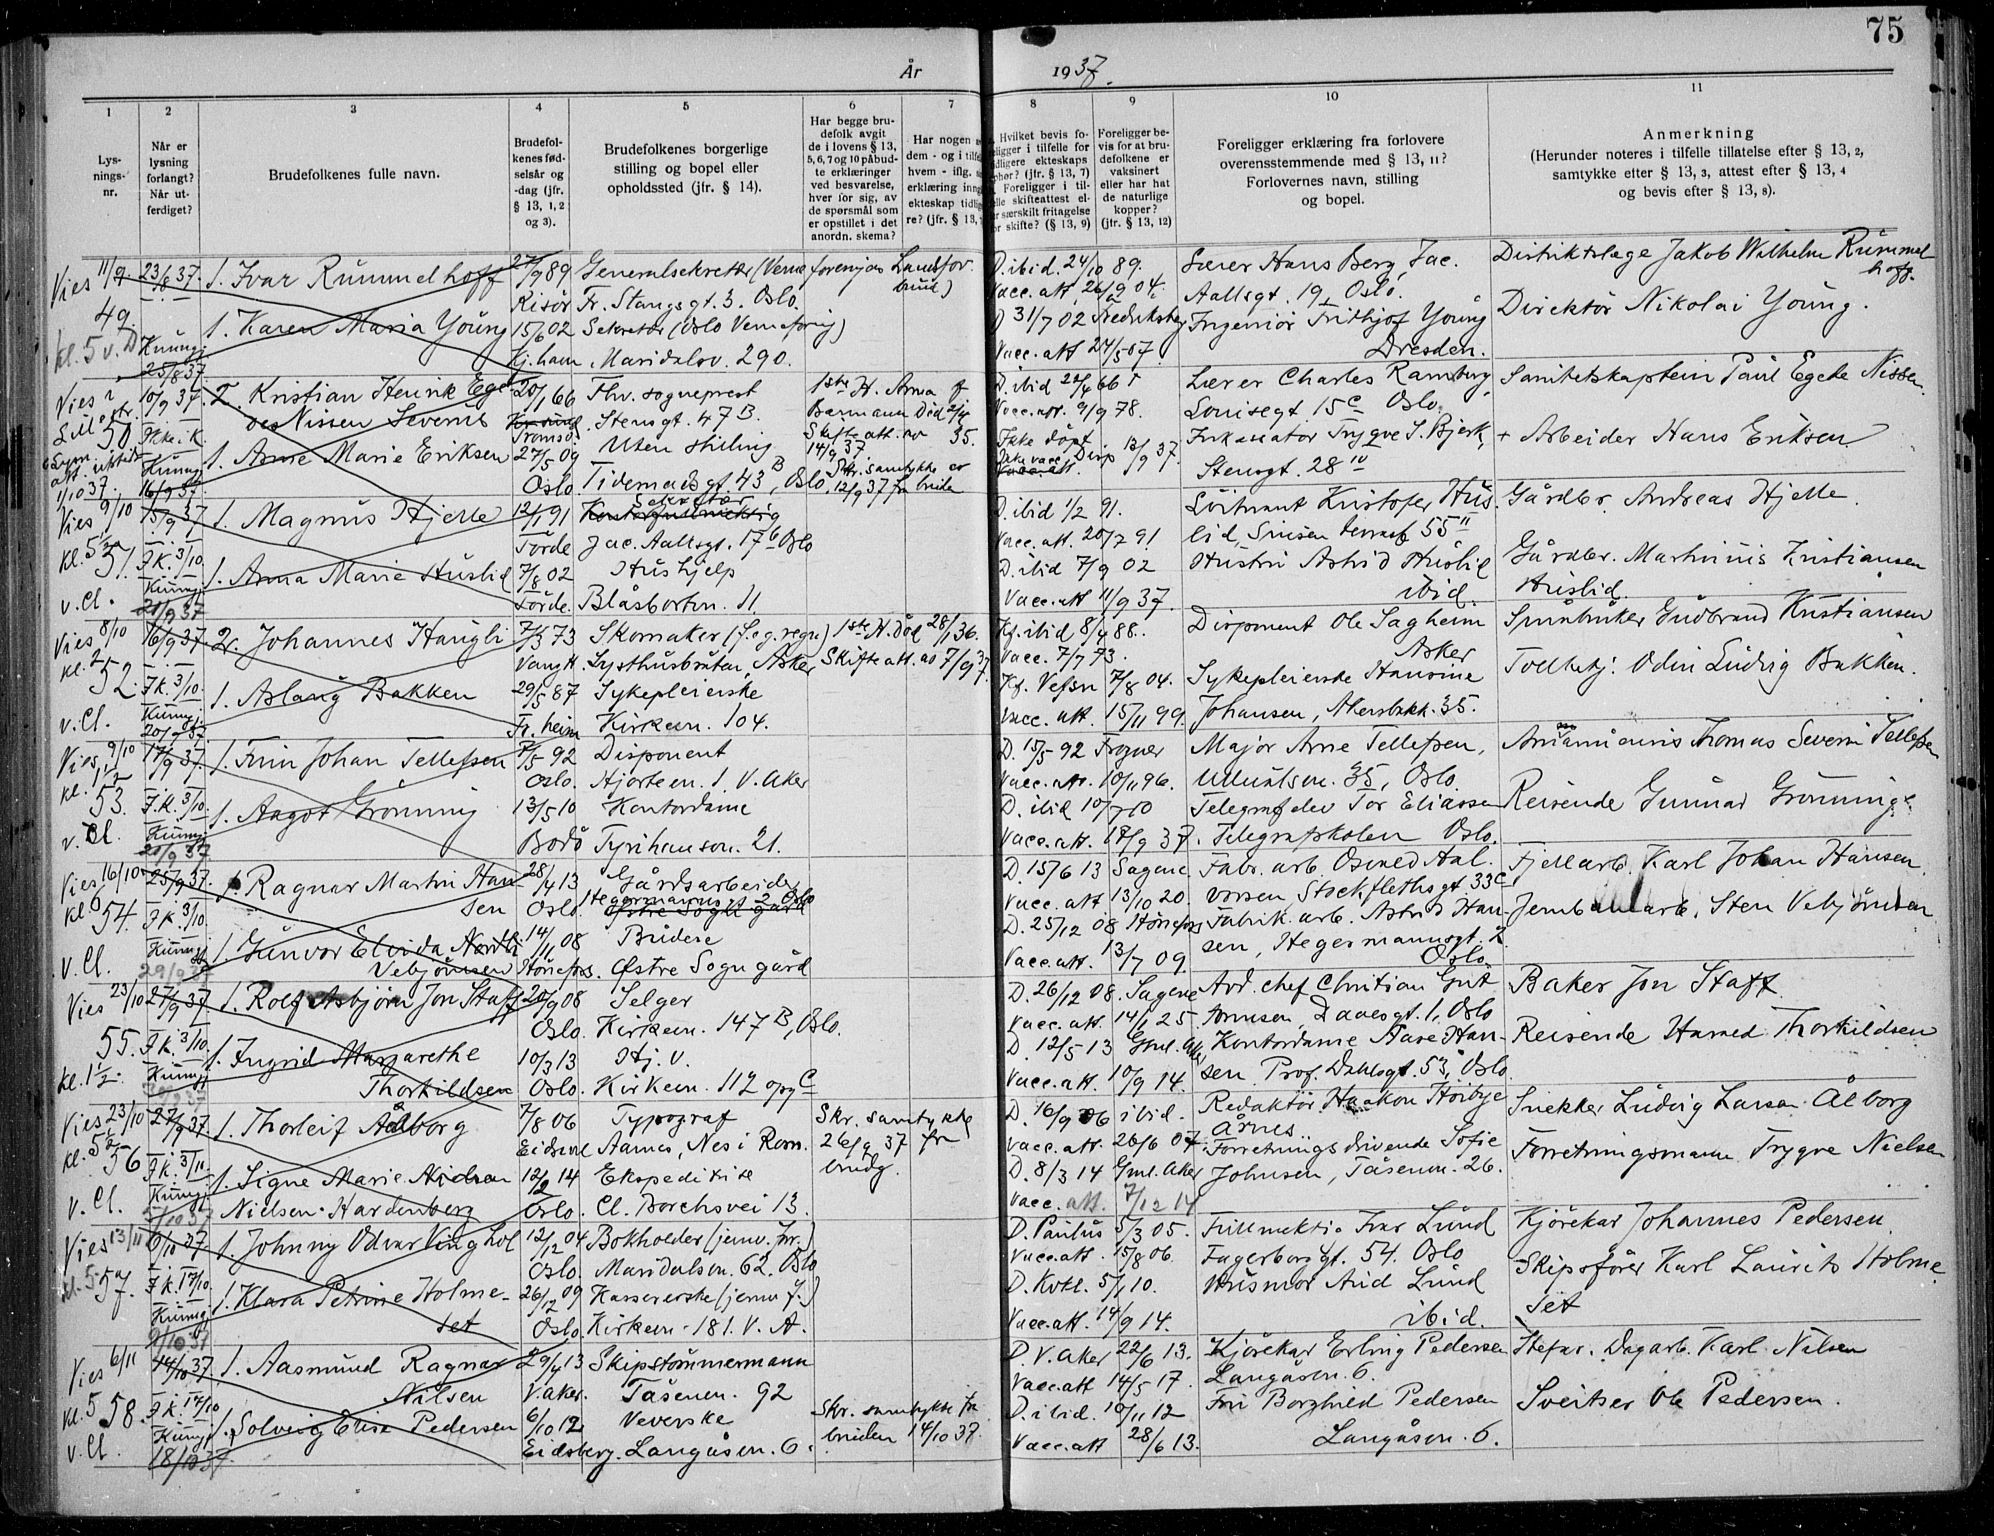 75
År 1937.
1 2 3 4 5 6 7 8 9 10 11
Lysningsnr.
Når er lysning forlangt? Når utferdiget?
Brudefolkenes fulle navn.
Brudefolkenes fødselsår og -dag (jfr. § 13, 1, 2 og 3).
Brudefolkenes borgerlige stilling og bopel eller opholdssted (jfr. § 14).
Har begge brudefolk avgit de i lovens § 13, 5, 6, 7 og 10 påbudte erklæringer ved besvarelse, hver for sig, av de spørsmål som er opstillet i det anordn. skema?
Har nogen
dem - og i tilf
hvem - iflg.
erklæring inng
ekteskap tidlig
re? (jfr. § 13,
Hvilket bevis fo-
ligger i tilfelle for
dligere ekteskaps
ophør? (jfr. § 13, 7)
Foreligger i til-
elle skifteattest el-
er særskilt fritagelse
or skifte? (§ 13, 9)
Foreligger bevis for at brudefolkene er vaksinert eller har hat de naturlige kopper? (jfr. § 13, 12)
Foreligger erklæring fra forlovere overensstemmende med § 13, 11? Forlovernes navn, stilling og bopel.
Anmerkning
(Herunder noteres i tilfelle tillatelse efter § 13, 2, samtykke efter § 13, 3, attest efter § 13, 4 og bevis efter § 13, 8).
Vies 11/9. 23/8 37. 1. Ivar Rummelhoff 27/9 89 Generalsekretær (Verneforeningens Landsforbund) D. ibid. 24/10 89. Lærer Hans Berg, Jac. Distriktslege Jakob Wilhelm Rummelhoff.
49 Risör Fr. Stangsgt. 3. Oslo. Vacc. att. 26/9 04. Aallsgt. 19, Oslo.
kl. 5 v. D Kunngj. 1. Karen Maria Young 15/6 02 Sekretær (Oslo Vernefoning) D 31/7 02 Fredriksberg Ingeniör Fridtjof Young Direktör Nikolai Young.
25/8 37 Kj.havn Maridalsv. 290. Vacc. att 24/5 07 Dresden.
Vies i 10/9 37. 2. Kristian Henrik Egede Nissen Severus 20/1 66 Fhv. sogneprest 1ste H. Anna f. Barmann Död D. ibid 22/4 66 Lærer Charles Ramberg, Sanitetskaptein Paul Egede Nissen
50. Tromsö. Stensgt. 47 B. Skifte att. av 14/9 37 35. Vacc. att. 9/9 78. Louisegt. 15c Oslo.
1. Anne Marie Eriksen 27/5 09 Uten stilling Skr. samtykke av Ikke döpt. Inkassator Trygve S. Bjerk, + Arbeider Hans Eriksen
1/10 37. 16/9 37. Oslo. Tidemandsgt. 43 B, Oslo. 12/9 37 fra bruden Stensgt. 28 IV
Vies 9/10 15/9 37 1. Magnus Hjelle 12/1 91 Sekretær D. ibid 1/2 91. Löitnant Kristofer Hus- Gårdbr. Andreas Hjelle.
kl. 5 1/2 51. F.K. 3/10. Förde Jac. Aallsgt. 17 b Oslo Vacc. att. 20/7 91 lid, Sinsen terrasse 55 II
1. Anna Marie Huslid 7/8 02 Hushjelp D. ibid 7/9 02 Hustru Astrid Huslid Gårdbr. Martinus Kristiansen
v. Cl. 20/9 37 Förde. Blåsbortvn. 11. Vacc. att 11/9 37. ibid. Huslid.
Vies 8/10 16/9 37 2. Johannes Haugli 7/3 73 Skomaker (f. eg. regn.) 1ste H. död 28/1 36. Kf. ibid 8/4 88. Disponent Ole Sagheim Småbruker Gudbrand Kristiansen
52. F.K. 3/10. Vang H. Lysthusbråten, Asker Skifte att. av 7/9 37. Vacc. 7/7 73. Asker
1. Aslaug Bakken 29/5 87 Sykepleierske Kf. Vefsn 7/8 04. Sykepleierske Hansine Tollbetj. Odin Ludvig Bakken.
v. Cl. 20/9 37 Kirkevn. 104. vacc. att. 15/11 99. Johansen, Akersbakk. 35.
Vies 9/10 17/9 37. 1. Finn Johan Tellefsen 7/5 92 Disponent D. 15/5 92 Frogner Major Arne Tellefsen, Thomas Severin Tellefsen
53. F.K. 3/10. Oslo. Hjortevn. 1. V. Aker Vacc. att. 10/11 96. Ullevålsvn. 35, Oslo.
1. Aagot Grönning 13/5 10 Kontordame D. ibid 10/7 10 Telegrafelev Tor Eliassen Reisende Gunnar Grönning.
v. Cl. Kunngj. 20/9 37 Bodö Tyrihansvn. 21. Vacc. att. 17/9 37. Telegrafskolen Oslo.
Vies 16/10 25/9 37. 1. Ragnar Martin Hansen 28/4 13 Gårdsarbeider D. 15/6 13 Sagene Fabr. arb. Osvald Hal- Fjellarb. Karl Johan Hansen
kl 6 54. F.K. 3/10. Oslo. Hegermannsgt. 2 Oslo Vacc. att 13/10 20. vorsen, Stockflethsgt. 33 C
1. Gunvor Elvida Vebjörnsen 14/11 08 Budeie D. 25/12 08 Hönefoss Fabrik. arb. Astrid Han- Jernbanearb. Sten Vebjörnsen
v. Cl. 29/9 37 Hönefoss. Östre Sogn gård Vacc. att. 13/7 09. sen, Hegermannsgt. 2 Oslo.
Vies 23/10 27/9 37. 1. Rolf Asbjörn Jon Staff 20/9 08 Selger D. 26/12 08. Sagene Avd. chef Christian Gut- Baker Jon Staff
55. F.K. 3/10. Oslo. Kirkevn. 147 B, Oslo. Vacc. att. 14/1 25 tormsen, Daaesgt. 1, Oslo
kl. 1 1/2. Kunngj. 1. Ingrid Margarethe Thorkildsen 10/3 13 Hj. v. D. 12/5 13 Gml. Aker Kontordame Aase Han- Reisende Harald Thorkildsen
Oslo. Kirkevn. 112 opg C Vacc. att. 10/9 14. sen. Prof. Dahlsgt. 53, Oslo
Vies 23/10 27/9 37. 1. Thorleif Aalborg 7/8 06 Typograf Skr. samtykke 26/9 37 fra brudg. D. 16/9 06 ibid. Redaktör Haakon Hörbye Snekker Ludvig Larsen Ålborg
56 F.K. 3/11. Eidsvoll Aarnes, Nes i Rom. vacc. att. 26/6 07. Årnes
1. Signe Marie Nielsen-Hardenberg 12/12 14 Ekspeditrise D. 8/3 14 Gml. Aker Forretningsdrivende Sofie Forretningsmann Trygve Nielsen
v. Cl. 5/10 37 Oslo. Cl. Borchsvei 13. Vacc. att. 7/12 14 Johnsen, Tåsenvn. 26.
Vies 13/11 6/10 37 1. Johnny Odvar 12/12 04 Bokholder (jernv. fr.) D. Paulus 5/3 05. Fullmektig Ivar Lund Kjörekar Johannes Pedersen
57. F.K. 17/10. Oslo. Maridalsvn. 62. Oslo Vacc. att. 15/8 06. Fagerborggt. 54. Oslo
1. Klara Petrine Holmeset 26/12 09 Kassererske (jernv. f.) D. Kvæ. 5/1 10. Husmor Aud Lund Skipsfører Karl Laurits Holmeset
9/10 37 Oslo. Kirkevn. 181. V. A. Vacc. att. 14/9 14. ibid.
Vies 6/11 14/10 37 1. Aasmund Ragnar Nilsen 29/4 13 Skipstömmermann D. V. Aker 22/6 13. Kjörekar Erling Pedersen Stefar. Dagarb. Karl Nilsen
kl. 5 58. F.K. 17/10 V. aker. Tåsenvn. 92 Vacc. att 14/5 17. Langåsvn. 6.
1. Solveig Elise Pedersen 6/10 12 Veverske Skr. samtykke fra bruden 14/10 37. D. ibid. 10/11 12 Fru Borghild Pedersen Sveitser Ole Pedersen.
v. Cl. 18/10 37 Eidsberg. Langåsvn. 6. Vacc. att 28/6 13. Langåsvn. 6.